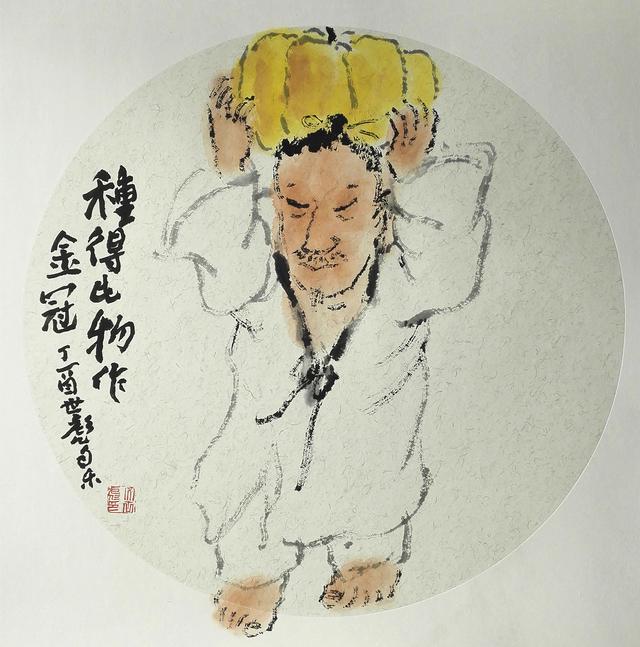 種得此物作
金冠
丁酉世彪自乐